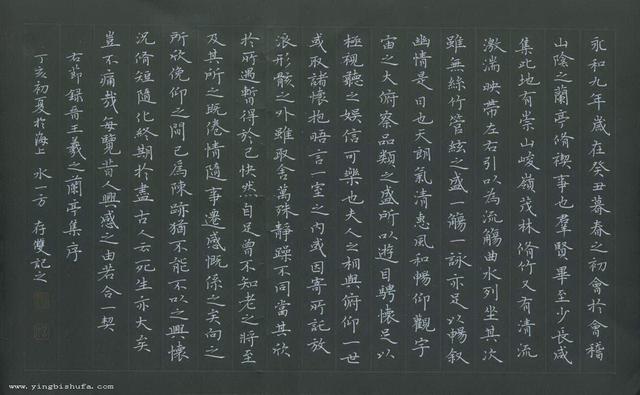 永和九年歲在癸丑暮春之初會於會稽
山陰之蘭亭脩禊事也羣賢畢至少長咸
集此地有崇山峻嶺茂林脩竹又有清流
激湍映帶左右引以為流觴曲水列坐其次
雖無絲竹管絃之盛一觴一詠亦足以暢敘
幽情是日也天朗氣清惠風和暢仰觀宇
宙之大俯察品類之盛所以遊目騁懷足以
極視聽之娛信可樂也夫人之相與俯仰一世
或取諸懷抱晤言一室之內或因寄所託放
浪形骸之外雖取舍萬殊靜躁不同當其欣
於所遇暫得於己快然自足曾不知老之將至
及其所之既倦情隨事遷感慨係之矣向之
所欣俛仰之間已為陳跡猶不能不以之興懷
況脩短隨化終期於盡古人云死生亦大矣
豈不痛哉每覽昔人興感之由若合一契
右節録晉王羲之蘭亭集序
丁亥初夏於海上 水一方 存雙記之
www.yingbishufa.com